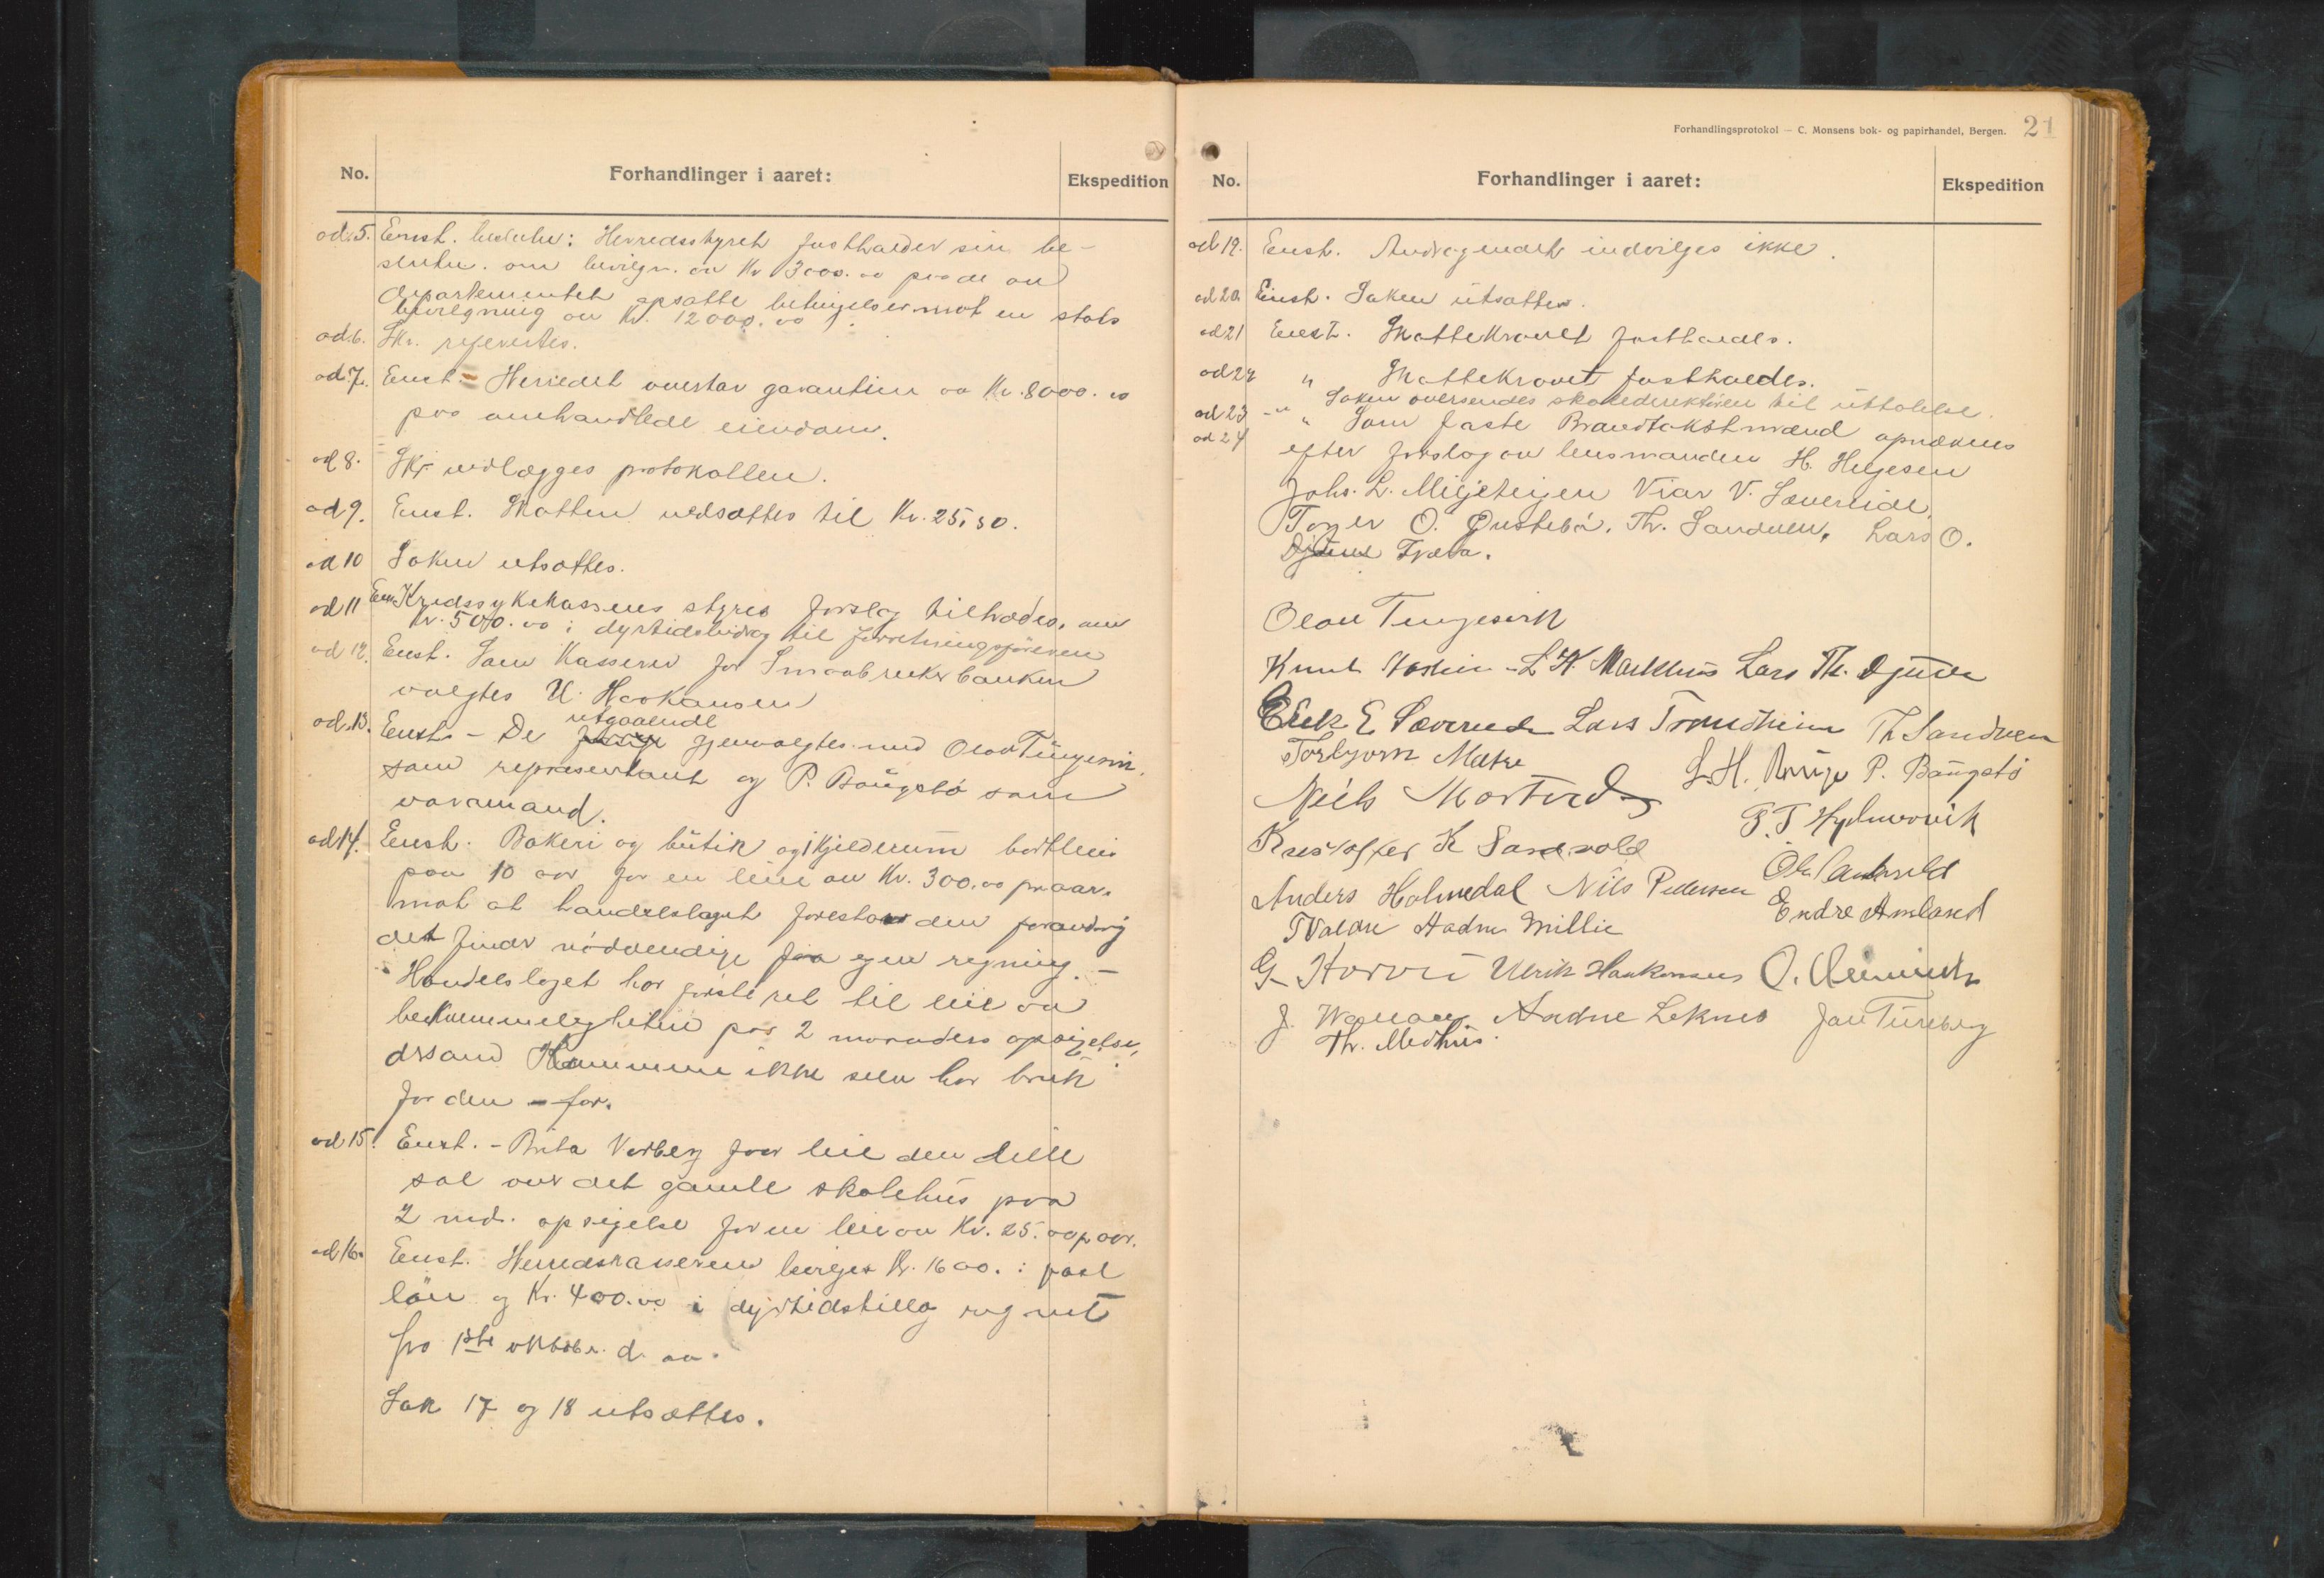 No. Forhandlinger i aaret: Ekspedition
ad 5. Enst. beslutn: Herredsstyret fastholder sin be-
slutn. om bevilgn. av Kr 3000.00 paa de av
departementet opsatte betingelser mot en stats
bevilgning av Kr. 12000.00
ad 6. Skr. refertes.
ad 7. Enst. - Herredet overtar garantien av Kr. 8000.00
paa omhandlede eiendom.
ad 8. Skr vedlægges protokollen.
ad 9. Enst. Skatten nedsættes til Kr. 25,50.
ad 10 Saken utsattes.
ad 11 Enst Kredssykekassens styres forslag tiltrædes, om
Kr. 500.00 i dyrtidsbidrag til forretningsføreren
ad 12. Enst. Som Kasserer for Smaabrukerbanken
valgtes U. Haakansen
utgaaende
ad 13. Enst. - De gjenvalgtes med Olav Tungesvik
som repræsentant og P. Baugstø som
varamand.
ad 14. Enst. Bakeri og butik og kjelderrum bortleies
paa 10 aar for en leie av Kr. 300.00 pr aar.
mot at handelslaget forestaar den forandring
det finder nödvendige for egen regning. -
Handelslaget har første ret til leie av
bekvemmeligheten paa 2 maaneders opsigelse,
dersom Kommunen ikke selv har bruk
for den - for.
ad 15. Enst. - Brita Varberg faar leie den lille
sal over det gamle skolehus paa
2 md. opsigelse for en leie av Kr. 25.00 p aar.
ad 16. Enst. Herredskassereren bevilges Kr. 1600. i fast
løn og Kr. 400.00 i dyrtidstillæg regnet
fra 1ste oktober d. aa.
Sak 17 og 18 utsættes.
Forhandlingsprotokol — C. Monsens bok- og papirhandel, Bergen. 21
No. Forhandlinger i aaret: Ekspedition
ad 19. Enst. Andragendet indvilges ikke.
ad 20. Enst. Saken utsattes.
ad 21 Enst. Skattekravet fastholdes.
ad 22 " Skattekravet fastholdes.
ad 23 - " Saken oversendes skoledirektøren til uttalelse.
ad 24 " Som faste Brandtakstmænd opnævnes
efter forslag av lensmanden H. Helgesen
Johs. L. Miljeteigen Viar V. Sævereide,
Torger O. Grustebø. Th. Sandven, Lars O.
Djuve Træa.
Olav Tungesvik
Knut L K Markhus Lars Th. Djuve
Erik E Sævereide Lars Trondheim Th Sandven
Torbjørn Matre L. H. P. Baugstø
Niels
P. T Hjelmevik
Kristoffer K Sandvold
Anders Holmedal Nils Pedersen
Endre Amland
T Valdre Aadne Millie
G Ulrik Haakonsen O.
J. Aadne Leknes Jan Tureberg
Th. Medhus.